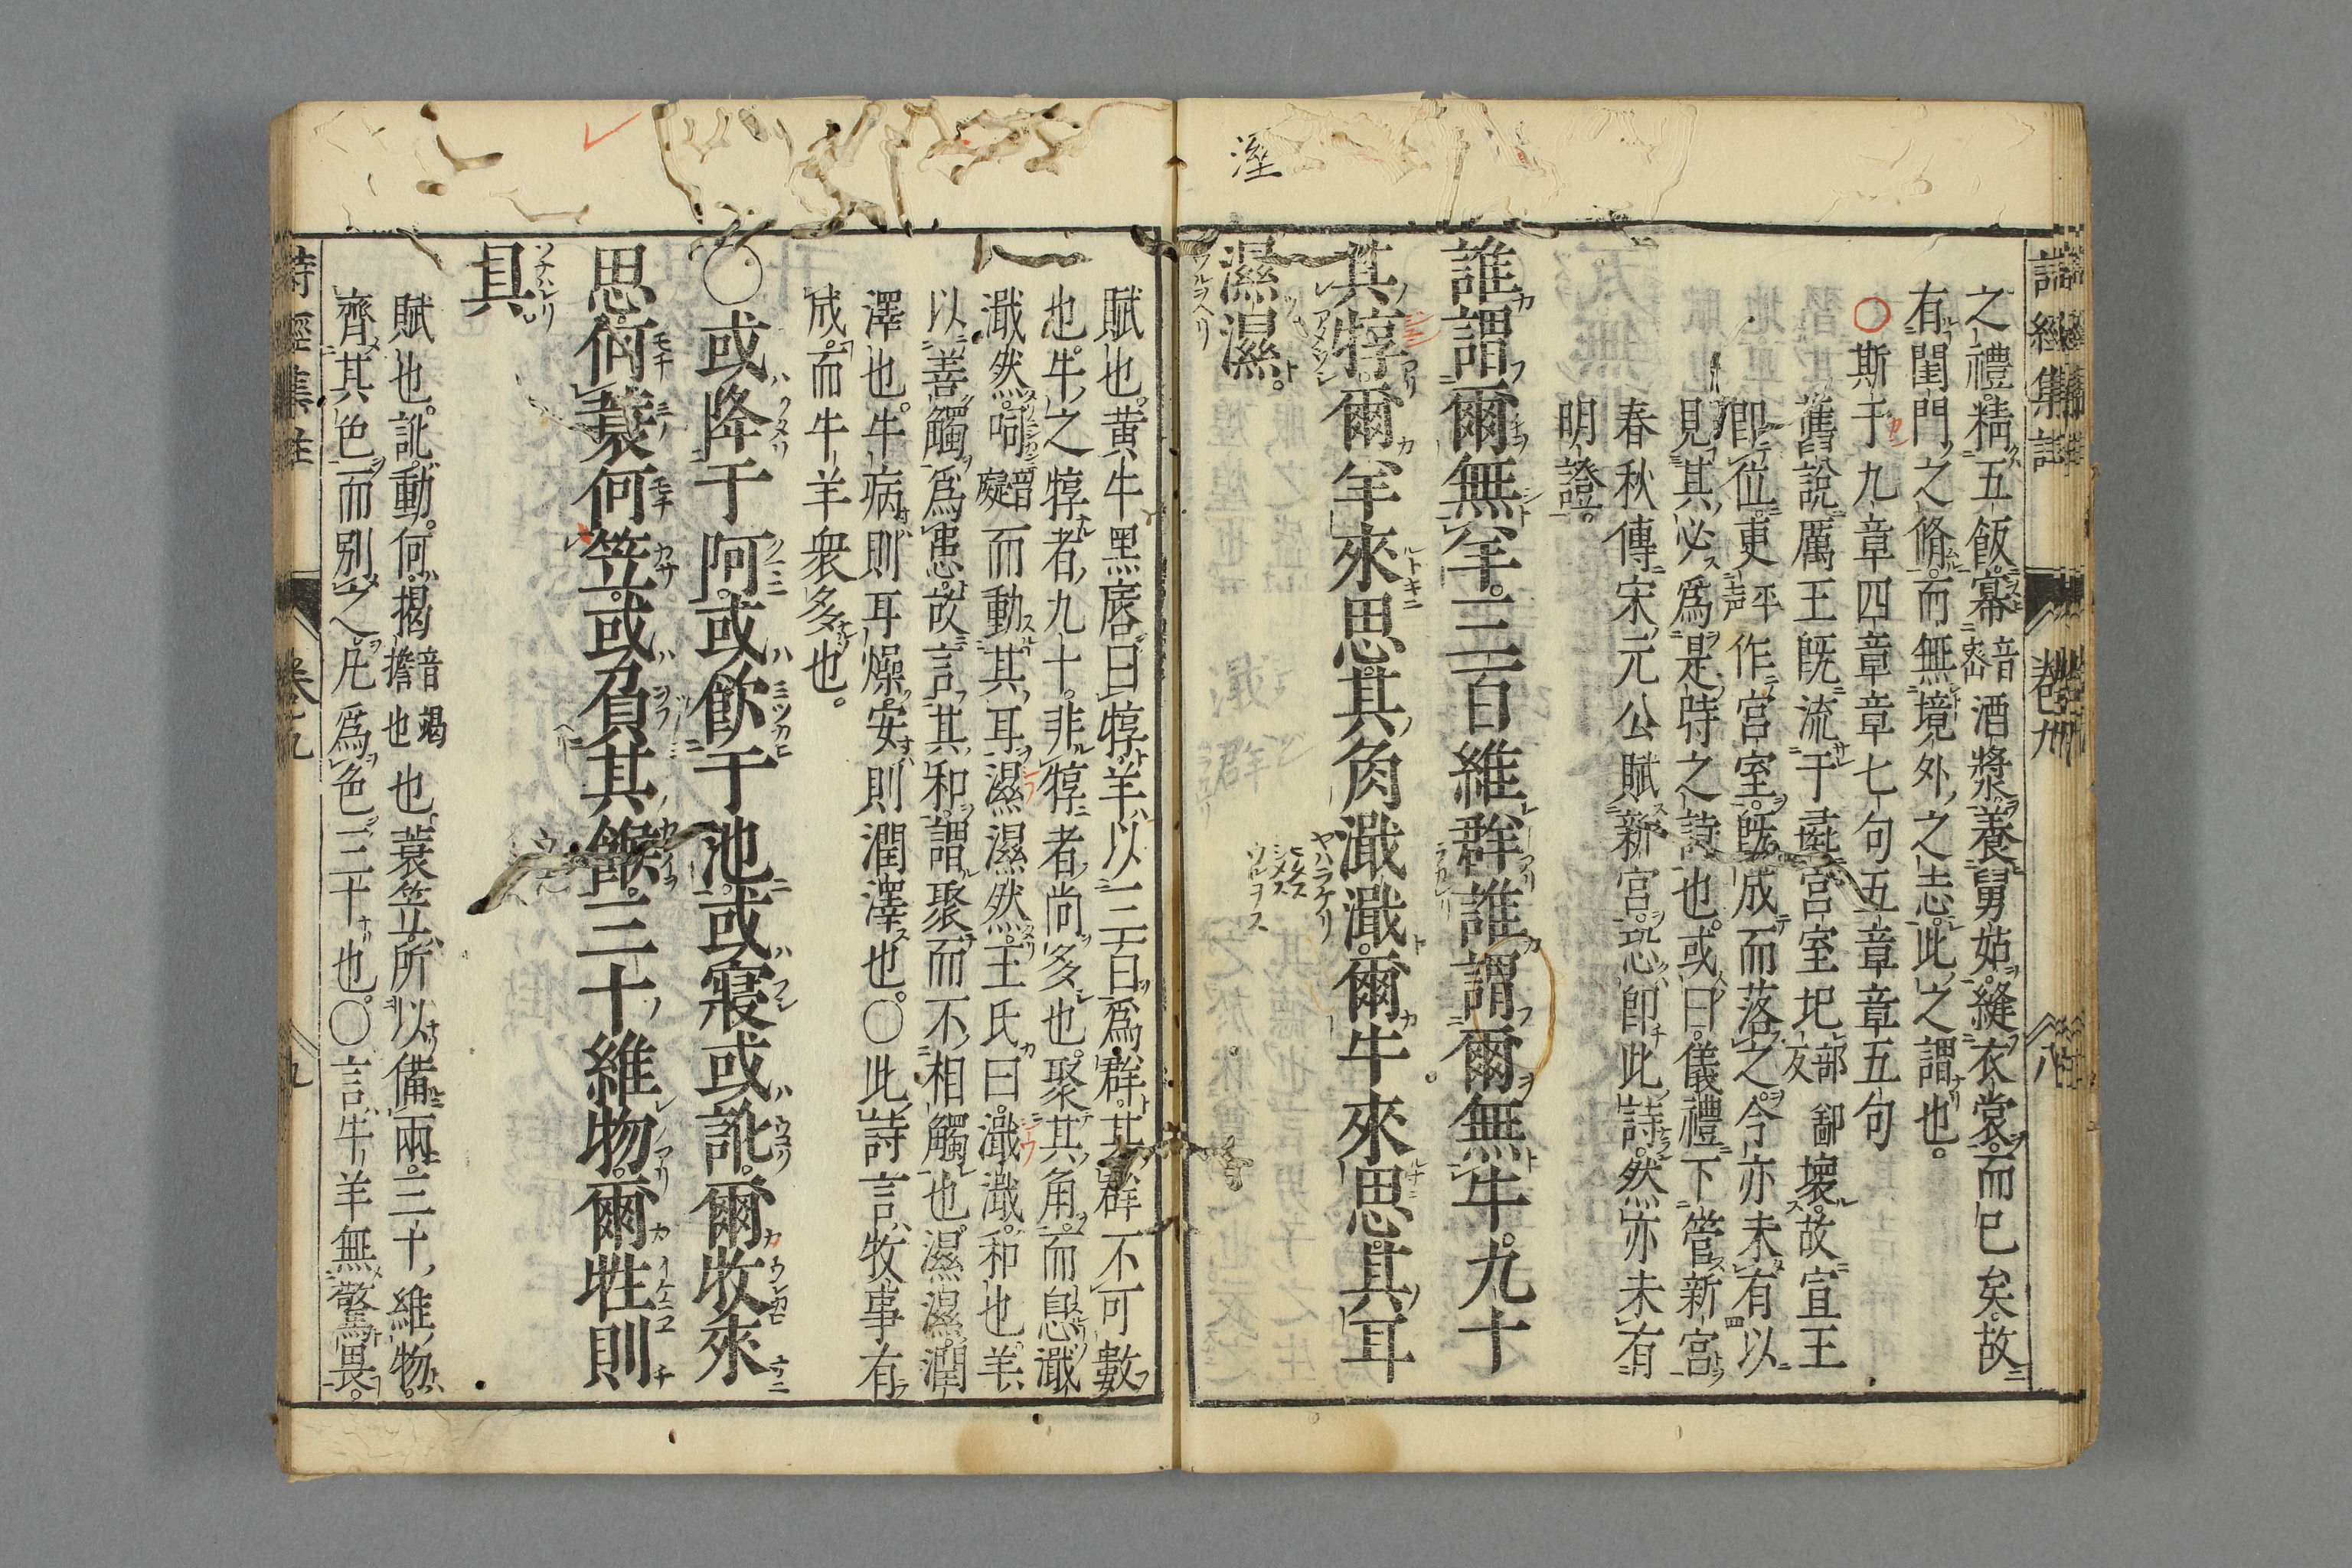 之禮精五飯冪音宻酒漿養舅姑縫衣裳而已矣故
有閨門之脩而無境外之志此之謂也。
○斯于九章四章章七句五章章五句
舊說厲王旣流于彘宮室圮部鄙友壞故宣王
卽位更平聲作宮室旣成而落之今亦未有以
見其必爲是時之詩也或曰儀禮下管新宮
春秋傳宋元公賦新宮恐卽此詩然亦未有
明證。
誰謂爾無羊三百維群誰謂爾無牛九十
其犉爾羊來思其角濈濈爾牛來思其耳
濕濕。
溼
賦也。黄牛黑脣曰犉羊以三百爲群其群不可數
也牛之犉者九十非犉者尚多也聚其角而息濈
濈然呞而動其耳濕濕然王氏曰濈濈和也羊
以善觸爲患故言其和謂聚而不相觸也濕濕潤
澤也。牛病則耳燥安則潤澤也。○此詩言牧事有
成而牛羊衆多也。
○或降于阿或飲于池或寢或訛爾牧來
思何蓑何笠或負其餱三十維物爾牲則
具
賦也。訛動。何揭音竭擔也也蓑笠所以備雨三十維物
齊其色而別之凡爲色三十也○言牛羊無驚畏。
詩經集註 卷九 八
詩經集註 卷九 九